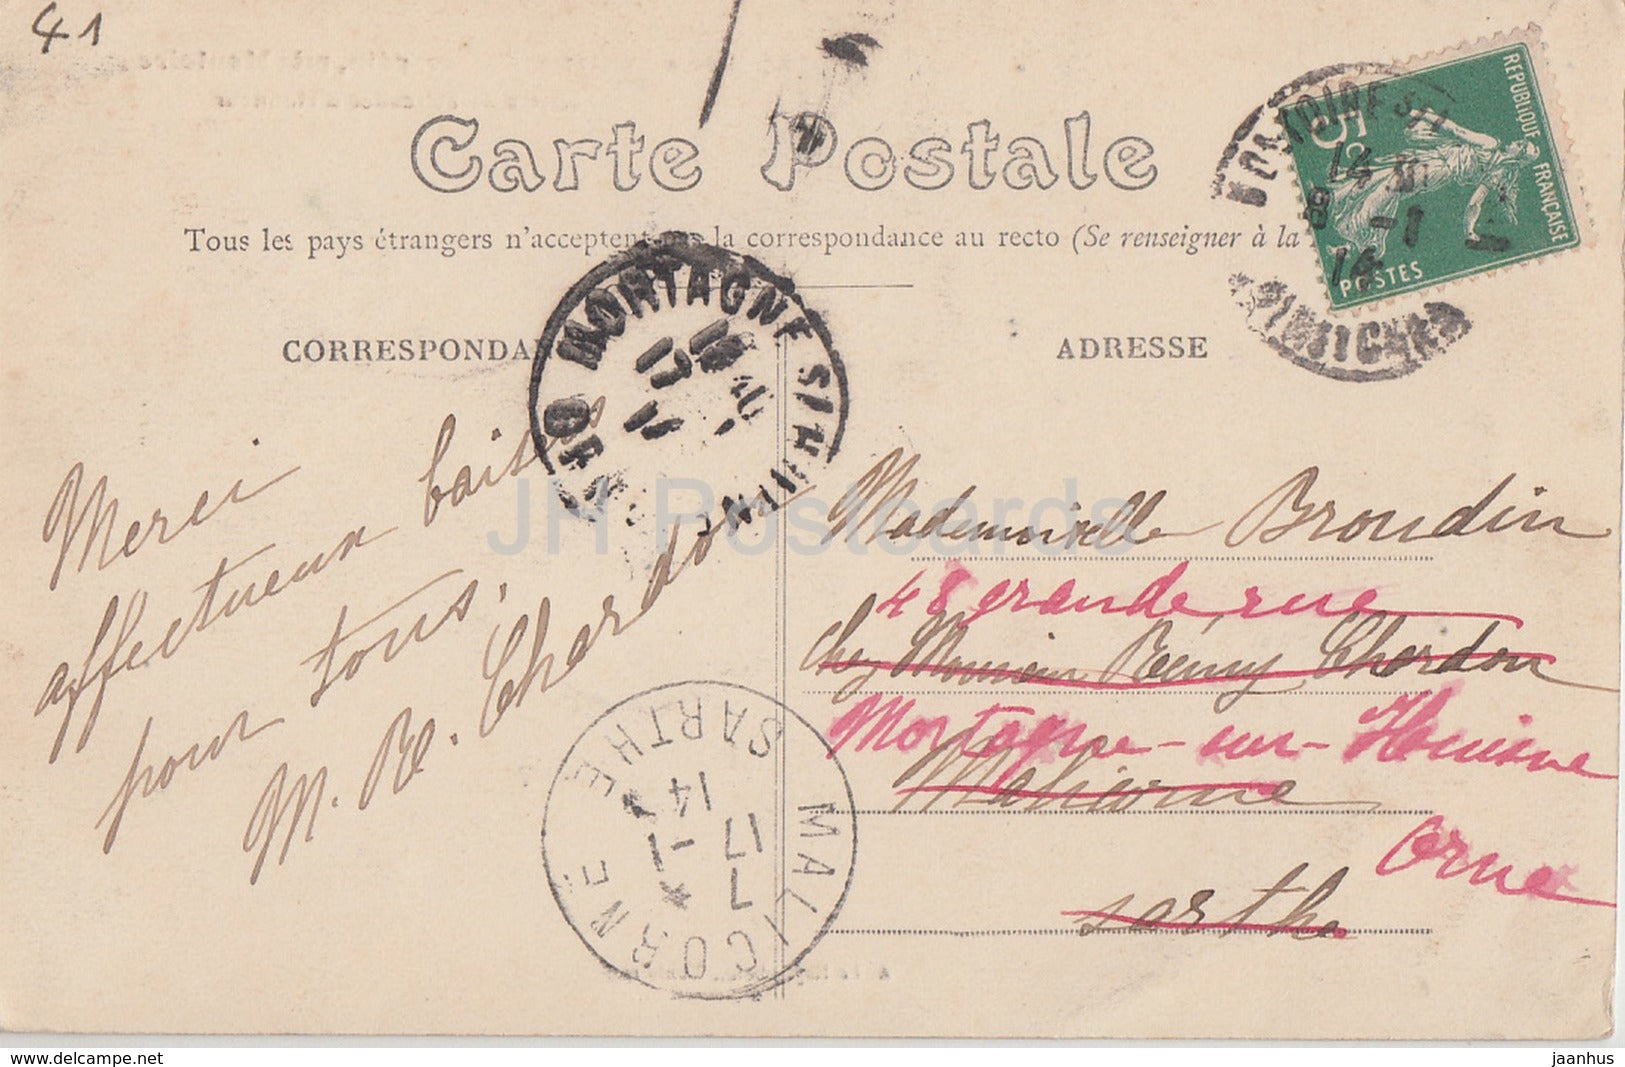 41
Carte Postale
Tous les pays étrangers n'acceptent pas la correspondance au recto (Se renseigner à la
CORRESPONDAN
ADRESSE
REPUBLIQUE FRANÇAISE
5c
POSTES
14
8 -1
14
MORTAGNE
ORNE
Merci
affectueux baisers
pour tous.
M. R. Chardon
Mademoiselle Broudin
48 grande rue
chez Monsieur Rémy Chardon
Mortagne-sur-Huisne
Malicorne
Orne
sarthe
MALICORNE
SARTHE
7
17 -1
14
JH Postcards
www.delcampe.net
jaanhus